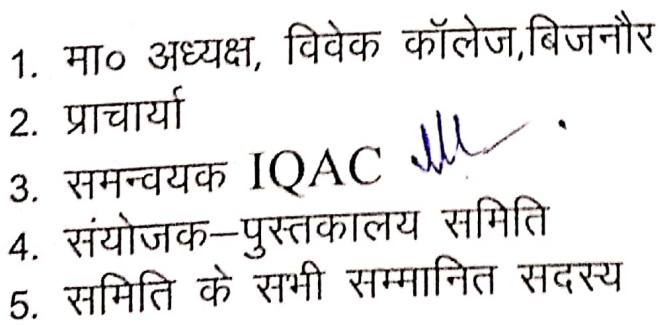 1. मा० अध्यक्ष, विवेक कॉलेज,बिजनौर
2. प्राचार्या
3. समन्वयक IQAC
4. संयोजक–पुस्तकालय समिति
5. समिति के सभी सम्मानित सदस्य